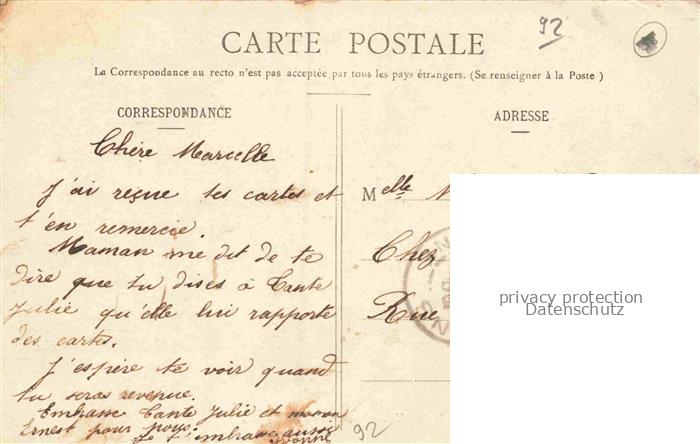 92
CARTE POSTALE
La Correspondance au recto n'est pas acceptée par tous les pays étrangers. (Se renseigner à la Poste)
CORRESPONDANCE
Chère Marcelle
J'ai reçue tes cartes et
t'en remercie.
Maman me dit de te
dire que tu dises à Tante
Julie qu'elle lui rapporte
des cartes.
J'espère te voir quand
tu seras revenue.
Embrasse Tante Julie et mon
Ernest pour nous.
Je t'embrasse aussi
Yvonne
ADRESSE
Melle
Chez
Rue
privacy protection
Datenschutz
92